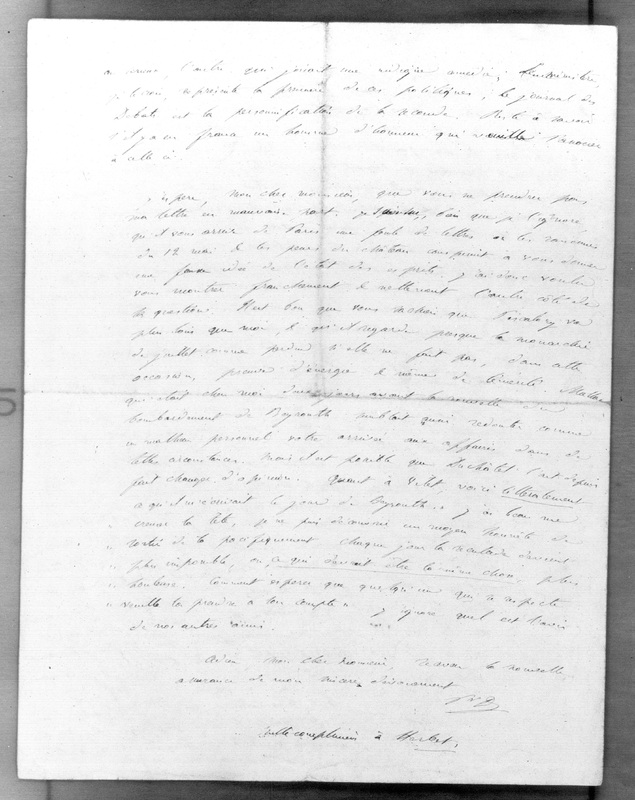 ou moins, l'autre qui jouait une ridicule comédie;
le baron, représente la première de ces politiques; le journal des
débats est la personnification de la seconde. Reste à savoir
s'il y a en france un homme d'honneur qui veuille s'associer
à celle ci.
J'espère, mon cher monsieur, que vous ne prendrez pas
ma lettre en mauvaise part. bien que je l'ignore,
qu'il vous arrive de Paris une foule de lettres où les rancunes
du 12 mai & les peurs du château conspirent à vous donner
une fausse idée de l'état des esprits. J'ai donc voulu
vous montrer franchement & nettement l'autre côté de
la question. Il est bon que vous sachiez que Piscatory va
plus loin que moi, & qu'il regarde presque la monarchie
de juillet comme perdue si elle ne fait pas, dans cette
occasion, preuve d'énergie & même de témérité.
qui était chez moi deux jours avant la nouvelle du
bombardement de Beyrouth semblait quasi redouter comme
un malheur personnel votre arrivée aux affaires dans de
telles circonstances. Mais il est possible que Duchâtel l'ait depuis
fait changer d'opinion. Quant à voici littéralement
ce qu'il m'écrivait le jour de Beyrouth. " J'ai beau me
creuser la tête, je ne puis découvrir un moyen honnête de
" sortir de là pacifiquement. Chaque jour la reculade devient
" plus impossible, ou, ce qui devrait être la même chose, plus
" honteuse. Comment espérer que quelqu'un qui se respecte
" veuille la prendre à son compte " J'ignore quel est l'avis
de nos autres amis.
Adieu mon cher monsieur, recevez la nouvelle
assurance de mon sincère dévouement
Mille complimens à Herbet.